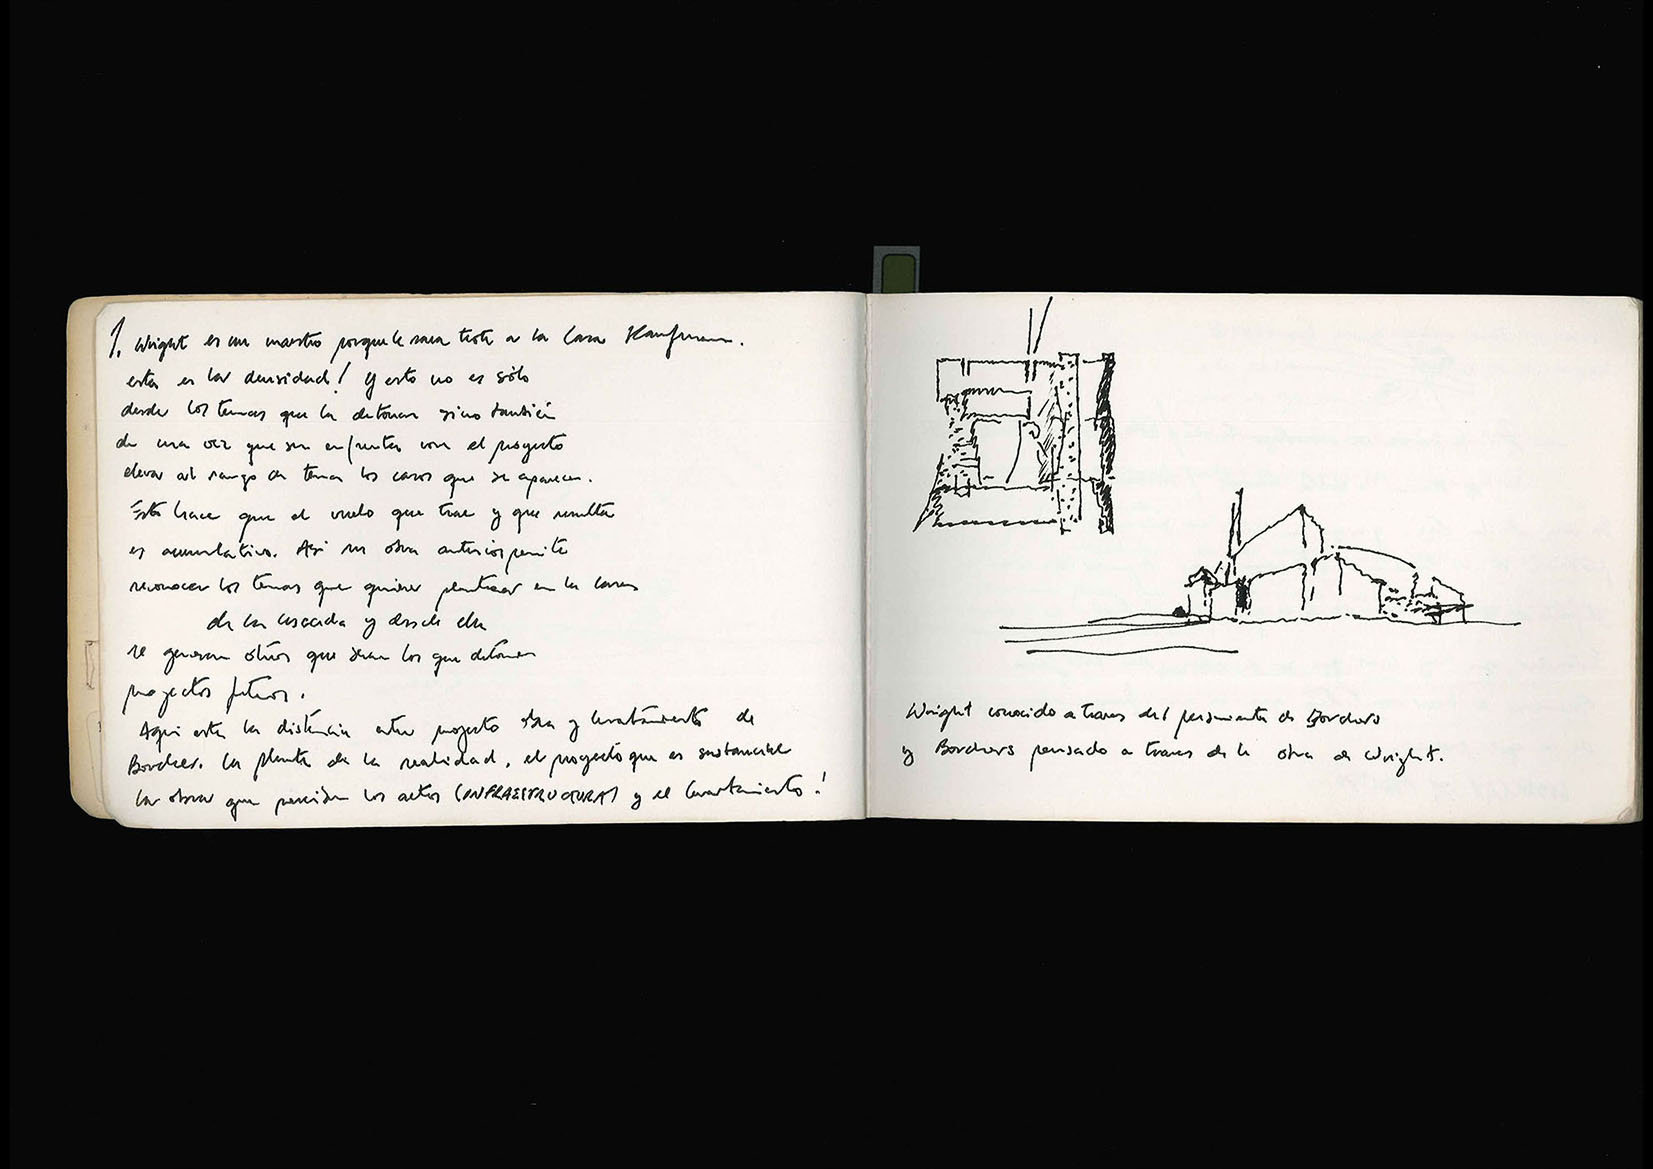 1. Wright es un maestro porque le saca trote a la Casa Kaufmann.
esta es la densidad! Y esto no es sólo
desde los temas que la detonan sino también
de una vez que se enfrenta con el proyecto
elevar al rango de tema los casos que se aparecen.
Esto hace que el vuelo que trae y que resulta
es acumulativo. Así su obra anterior permite
reconocer los temas que quiere plantear en la casa
de la cascada y desde ella
se generan otros que serán los que detonen
proyectos futuros.
Aquí esta la distancia entre proyecto obra y levantamiento de
Borchers. la planta de la realidad, el proyecto que es sustancial
la obra que los actos (INFRAESTRUCTURA) y el levantamiento!
Wright conocido a traves del pensamiento de Borchers
y Borchers pensado a traves de la obra de Wright.